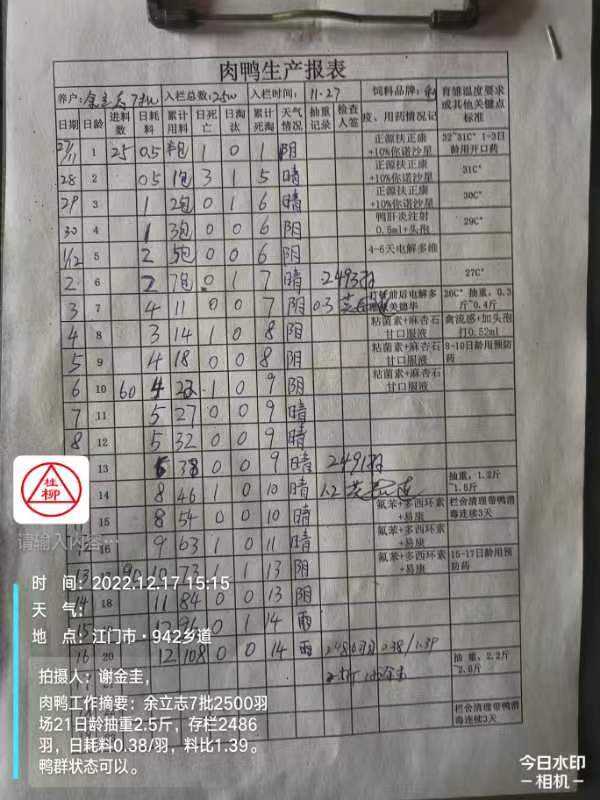 肉鸭生产报表
养户: 余立志7批 入栏总数: 25w 入栏时间: 11-27 饲料品牌: 育雏温度要求或其他关键点标准
日期 日龄 进料数 日耗料 累计用料 日死亡 日淘汰 累计死淘 天气情况 抽重记录 检查人签 疫、用药情况记
27/11 1 25 0.5 半包 1 0 1 阴 正源扶正康+10%你诺沙星 32~31C° 1-3日龄用开口药
28 2 0.5 1包 3 1 5 晴 正源扶正康+10%你诺沙星 31C°
29 3 1 2包 0 1 6 晴 正源扶正康+10%你诺沙星 30C°
30 4 1 3包 0 0 6 阴 鸭肝炎注射0.5ml+头孢 29C°
1/12 5 2 5包 0 0 6 阴 4-6天电解多维
2 6 2 7包 0 1 7 晴 2493羽 27C°
3 7 4 11 0 0 7 阴 0.3 26C° 抽重,0.3斤~0.4斤
4 8 3 14 1 0 8 阴 粘菌素+麻杏石甘口服液 禽流感+加头孢打0.52ml
5 9 4 18 0 0 8 阴 粘菌素+麻杏石甘口服液 8-10日龄用预防药
6 10 60 4 22 1 0 9 阴 粘菌素+麻杏石甘口服液
7 11 5 27 0 0 9 晴
8 12 5 32 0 0 9 晴
13 6 38 0 0 9 晴 2491羽
14 8 46 1 0 10 晴 1.2 抽重,1.2斤~1.5斤
15 8 54 0 0 10 晴 氟苯+多西环素+易康 栏舍清理带鸭消毒连续3天
16 9 63 1 0 11 晴 氟苯+多西环素+易康
13 90 10 73 1 1 13 阴 氟苯+多西环素+易康 15-17日龄用预防药
14 18 11 84 0 0 13 阴
12 96 0 1 14 雨
16 20 12 108 0 0 14 雨 2486羽 0.38/1.39 抽重,2.2斤~2.6斤
栏舍清理带鸭消毒连续3天
桂柳
请输入内容...
时 间: 2022.12.17 15:15
天 气:
地 点: 江门市·942乡道
拍摄人: 谢金圭,
肉鸭工作摘要: 余立志7批2500羽
场21日龄抽重2.5斤，存栏2486
羽，日耗料0.38/羽，料比1.39。
鸭群状态可以。
今日水印
-相机-